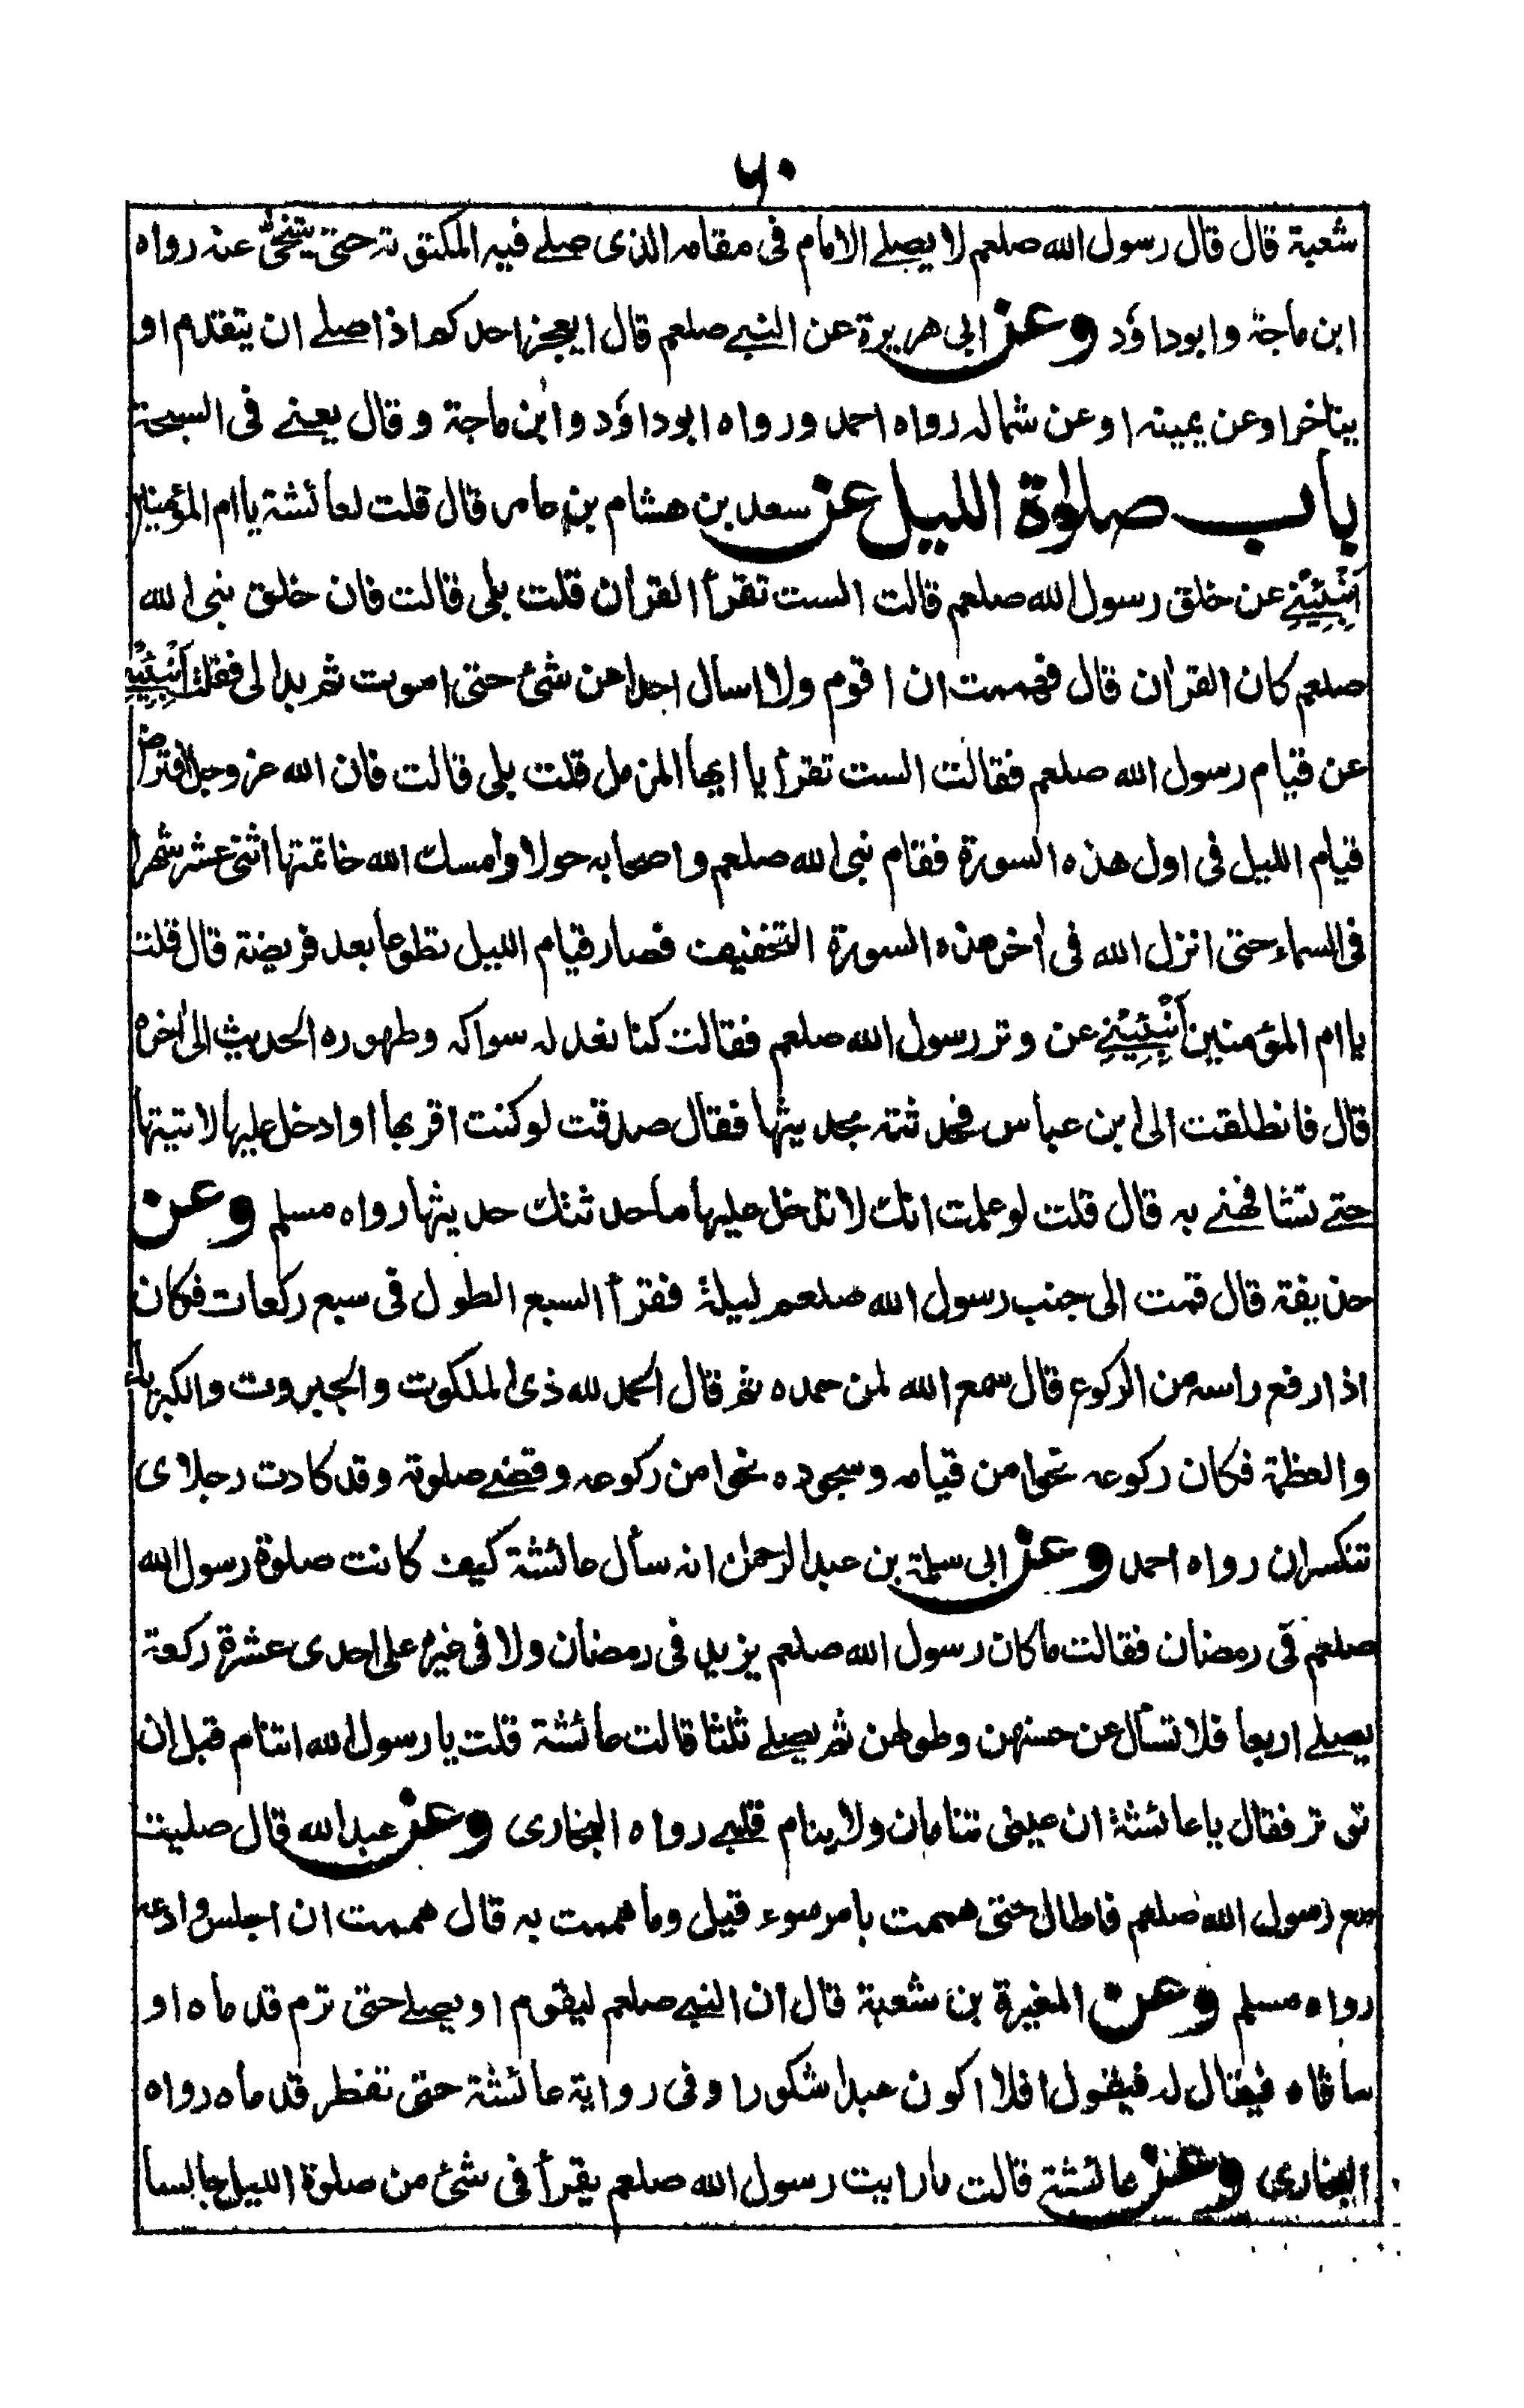 ٦٠
شعبة قال قال رسول الله صلعم لا يصلے الامام فى مقامه الذى صلے فيه المكتوبة حتى يتنحىّ عنه رواه
ابن ماجة وابوداؤد وعن ابى هريرة عن النبے صلعم قال ايعجز احدكم اذا صلے ان يتقدم او
يتاخر او عن يمينه او عن شماله رواه احمد ورواه ابوداؤد وابن ماجة وقال يعنے فى السبحة
باب صلوٰة الليل عن سعد بن هشام بن عامر قال قلت لعائشة يا ام المؤمنين
اَنْبِئِيْنِے عن خلق رسول الله صلعم قالت الست تقرأ القراٰن قلت بلى قالت فان خلق نبى الله
صلعم كان القراٰن قال فهممت ان اقوم ولا اسال احدا عن شئ حتى اموت ثم بدا لى فقلت اَنْبِئِيْنِے
عن قيام رسول الله صلعم فقالت الست تقرأ يا ايها المزمل قلت بلى قالت فان الله عز وجل افترض
قيام الليل فى اول هذه السورة فقام نبى الله صلعم واصحابه حولا وامسك الله خاتمتها اثنى عشر شهرا
فى السماء حتى انزل الله فى اٰخر هذه السورة التخفيف فصار قيام الليل تطوعا بعد فريضة قال قلت
يا ام المؤمنين اَنْبِئِيْنِے عن وتر رسول الله صلعم فقالت كنا نعد له سواكه وطهوره الحديث الى اٰخره
قال فانطلقت الى ابن عباس فحدثته بحديثها فقال صدقت لو كنت اقربها او ادخل عليها لاتيتها
حتے تشافهنے به قال قلت لو علمت انك لا تدخل عليها ما حدثتك حديثها رواه مسلم وعن
حذيفة قال قمت الى جنب رسول الله صلعم ليلة فقرأ السبع الطول فى سبع ركعات فكان
اذا رفع راسه من الركوع قال سمع الله لمن حمده ثم قال الحمد لله ذى الملكوت والجبروت والكبرياء
والعظمة فكان ركوعه نحوا من قيامه وسجوده نحوا من ركوعه وقضے صلوته وقد كادت رجلاى
تنكسران رواه احمد وعن ابى سلمة بن عبد الرحمٰن انه سأل عائشة كيف كانت صلوة رسول الله
صلعم فى رمضان فقالت ما كان رسول الله صلعم يزيد فى رمضان ولا فى غيره على احدى عشرة ركعة
يصلے اربعا فلا تسأل عن حسنهن وطولهن ثم يصلے ثلثا قالت عائشة قلت يا رسول الله اتنام قبل ان
توتر فقال يا عائشة ان عينى تنامان ولا ينام قلبے رواه البخارى وعن عبد الله قال صليت
مع رسول الله صلعم فاطال حتى هممت بامر سوء قيل وما هممت به قال هممت ان اجلس وادعه
رواه مسلم وعن المغيرة بن شعبة قال ان النبے صلعم ليقوم او يصلے حتى ترم قدماه او
ساقاه فيقال له فيقول افلا اكون عبدا شكورا وفى رواية عائشة حتى تفطر قدماه رواه
البخارى وعن عائشة قالت ما رايت رسول الله صلعم يقرأ فى شئ من صلوة الليل جالسا